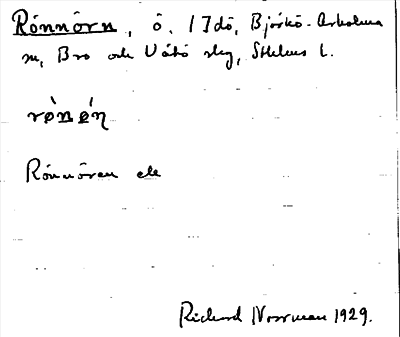 Rönnörn, ö, i Idö, Björkö-Arholma
m, Bro och Vätö skg, Sthlms l.
rǿnǿn
Rönnören ek
Richard Norrman 1929.